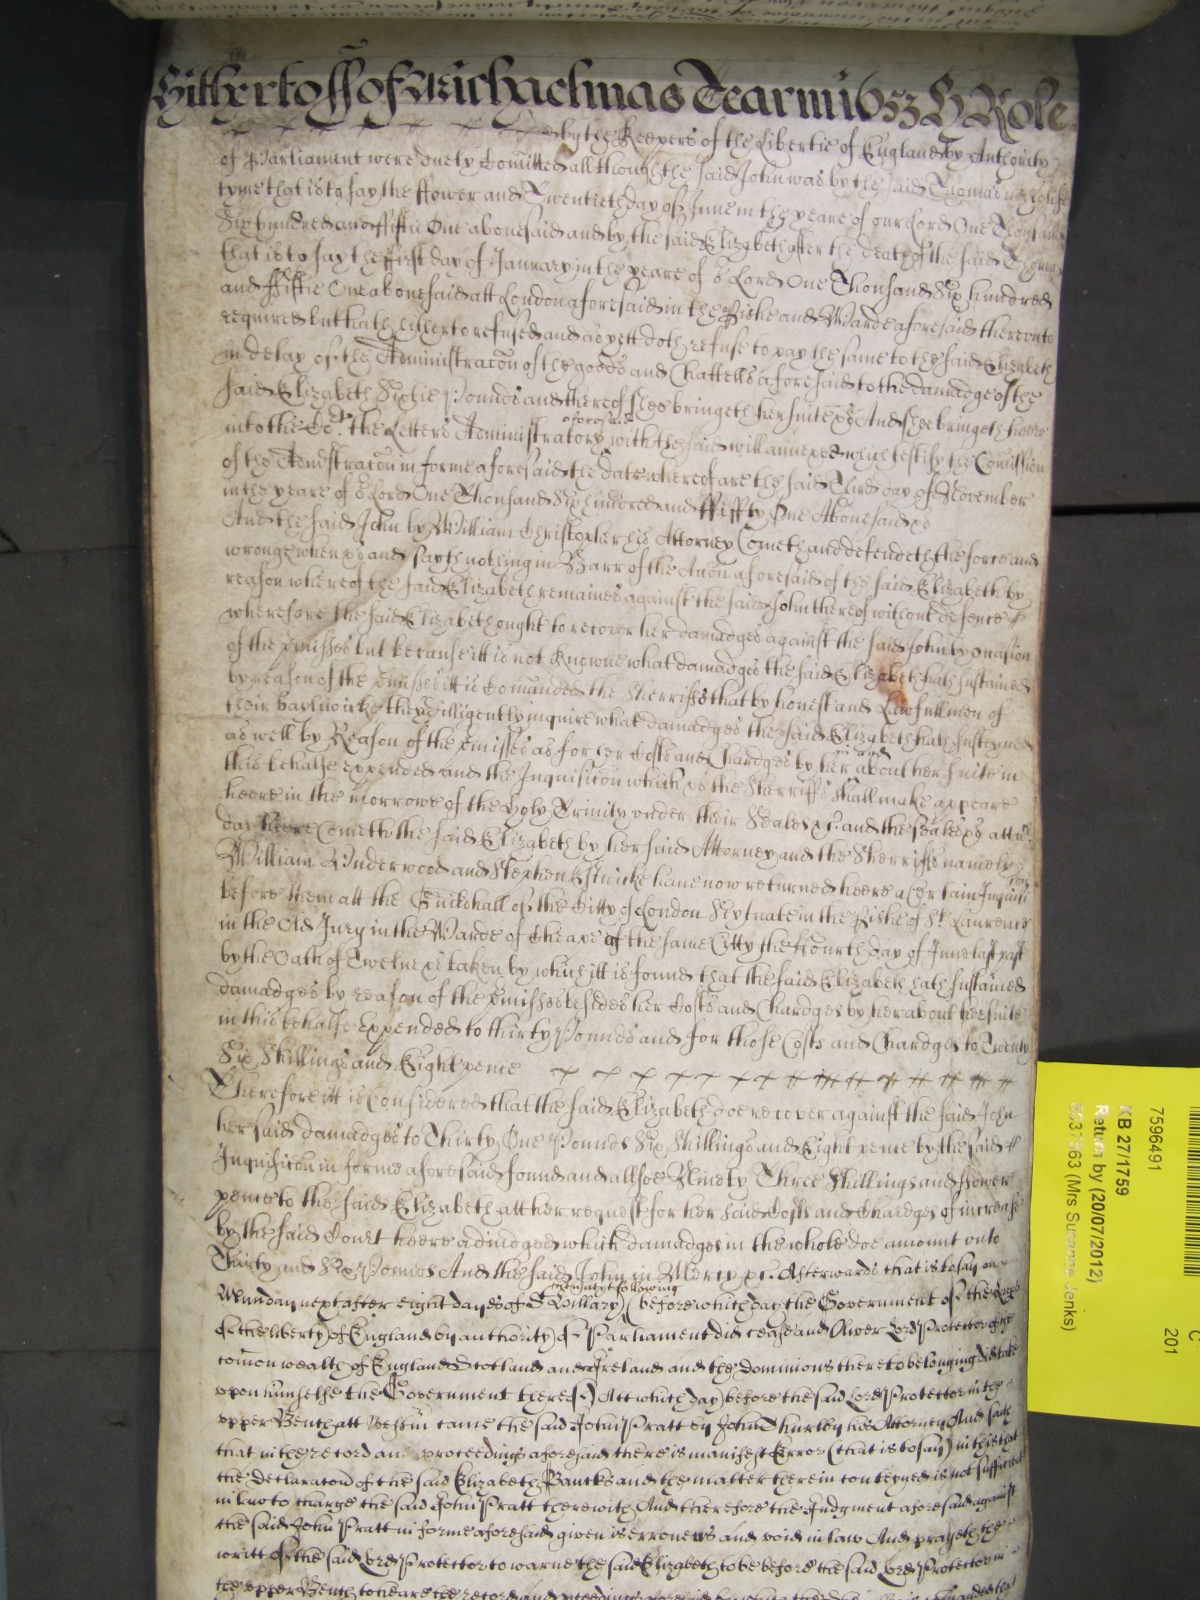 Hitherto ss of Michaelmas Tearm 1653 Role
by the Keepers of the Libertie of England by Authority
of Parliament were onely Comitted all though the said John was by the said Thomas in his life
tyme that is to say the ffower and Twentieth day of June in the yeare of our Lord One Thousand
Six hundred and ffiftie One abovesaid and by the said Elizabeth after the death of the said Thomas
that is to say the first day of January in the yeare of or Lord One Thousand Six hundred
and ffiftie One abovesaid att London aforesaid in the Pishe and Warde aforesaid thereunto
required but hath hitherto refused and as yett doth refuse to pay the same to the said Elizabeth
in delay of the Administracon of the goods and Chattells aforesaid to the damadge of the
said Elizabeth Sixtie Pounds and thereof shee bringeth her suite &c And shee bringeth heere
into the Cort the Letters Administratory aforesaid with the said will annexed which testify the Comission
of the Admstracon in forme aforesaid the date whereof are the said Third day of November
in the yeare of or Lord One Thousand Six hundred and ffiffty One Abovesaid &c
And the said John by William Christopher his Attorney Cometh and defendeth the force and
wronge when &c and sayth nothing in Barr of the Accon aforesaid of the said Elizabeth by
reason whereof the said Elizabeth remaines against the said John thereof without defence
wherefore the said Elizabeth ought to recover her damadges against the said John by occasion
of the pmisses but because itt is not knowne what damadges the said Elizabeth hath sustained
by reason of the pmisses itt is Comanded the Sherriffs that by honest and Lawfull men of
their baylwicke they dilligently inquire what damadges the said Elizabeth hath susteyned
as well by Reason of the pmisses as for her Costs and Chardges by her about her suite in
this behalfe expended and the Inquisicon which &c the Sherriffs shall make appeare
heere in the morrowe of the Holy Trinity under their Seales &c and the seales &c att wch
day heere Cometh the said Elizabeth by her said Attorney and the Sherriffs namely
William Underwood and Stephen Estwicke have now returned heere a Certain Inquisicon
before them att the Guildhall of the Citty of London Scytuate in the Pishe of St Laurence
in the Old Jury in the Warde of Cheape of the same Citty the ffourth day of June last past
by the Oath of Twelve &c taken by which itt is found that the said Elizabeth hath sustained
damadges by reason of the pmisses besides her Costs and Chardges by her about her suite
in this behalfe Expended to thirty Pounds and for those Costs and Chardges to Twenty
Six Shillings and Eight pence
Therefore itt is Considered that the said Elizabeth doe recover against the said John
her said damadges to Thirty One Pounds Six Shillings and Eight pence by the said
Inquisicon in forme aforesaid found and allsoe Ninety Three Shillings and ffower
pence to the said Elizabeth att her request for her said Costs and Chardges of increase
by the said Court heere adiudged which damadges in the whole doe amount unto
Thirty and Six Pounds And the said John in Mercy &c. Afterwards that is to say on
Munday next after eight dayes of St Hillary then next following before which day the Government of the Keeprs
of the liberty of England by authority of Parliament did cease and Oliver Lord Protector of the
comon wealth of England Scotland and Ireland and the dominions thereto belonging did take
upon himselfe the Government thereof Att which day before the said Lord Protector in the
upper Bench att Westm came the said John Pratt by John Thurlby his Attorney And saith
that in the record and proceedings aforesaid there is manifest Error (that is to say) in this that
the declaracon of the said Elizabeth Bancks and the matter therein conteyned is not sufficient
in law to charge the said John Pratt therewith And therefore the Judgment aforesaid against
the said John Pratt in forme aforesaid given is erronews and void in law And prayeth the
writt of the said Lord Protector to warne the said Elizabeth to be before the said Lord Protector in
the upper Bench to heare the record and
7596491
KB 27/1759
Return by (20/07/2012)
(Mrs Susanne Jenks)
C
201